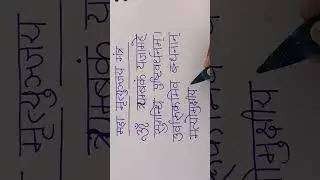 महा मृत्युञ्जय मंत्र
ॐ त्र्यम्बकं यजामहे
सुगन्धिं पुष्टिवर्धनम्।
उर्वारुकमिव बन्धनान्
मृत्योर्मुक्षीय